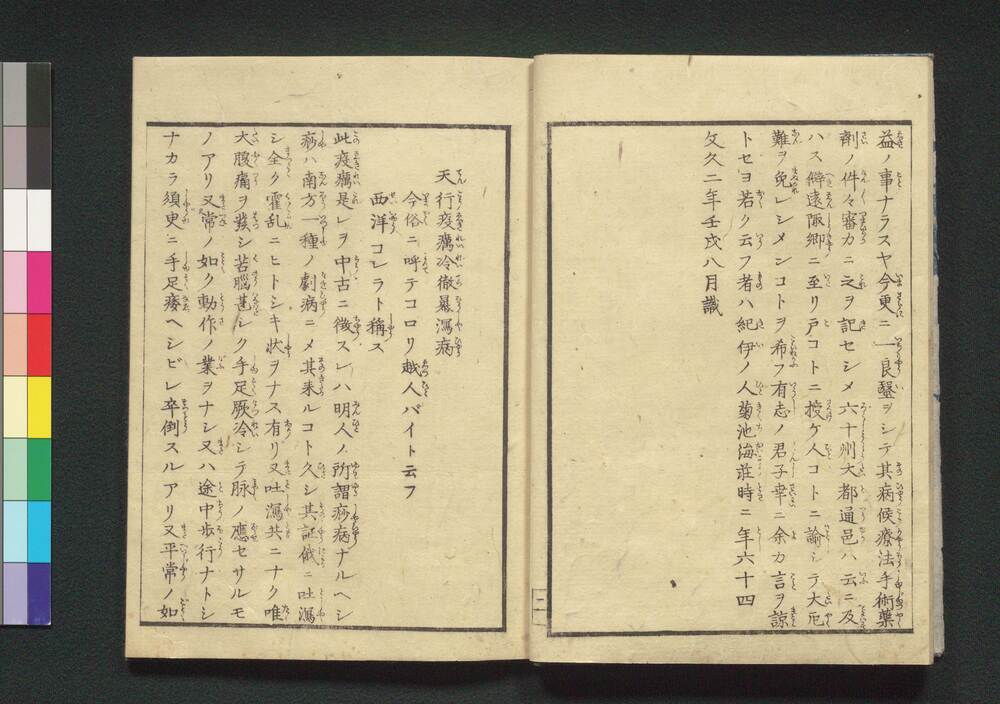 益ノ事ナラスヤ今更ニ一良醫ヲシテ其病候療法手術藥
劑ノ件々審カニ之ヲ記セシメ六十州大都通邑ハ云ニ及
ハス僻遠陬郷ニ至リ戸コトニ授ケ人コトニ諭シテ大厄
難ヲ免レシメンコトヲ希フ有志ノ君子幸ニ余カ言ヲ諒
トセヨ若ク云フ者ハ紀伊ノ人菊池海莊時ニ年六十四
文久二年壬戌八月識
天行疫癘冷徹暴瀉病
今俗ニ呼テコロリ越人バイト云フ
西洋コレラト稱ス
此疫癘是レヲ中古ニ徴スレハ明人ノ所謂痧病ナルヘシ
痧ハ南方一種ノ劇病ニメ其来ルコト久シ其証俄ニ吐瀉
シ全ク霍乱ニヒトシキ状ヲナス有リ又吐瀉共ニナク唯
大腹痛ヲ發シ苦腦甚シク手足厥冷シテ脉ノ應セサルモ
ノアリ又常ノ如ク動作ノ業ヲナシ又ハ途中歩行ナトシ
ナカラ須臾ニ手足痿ヘシビレ卒倒スルアリ又平常ノ如